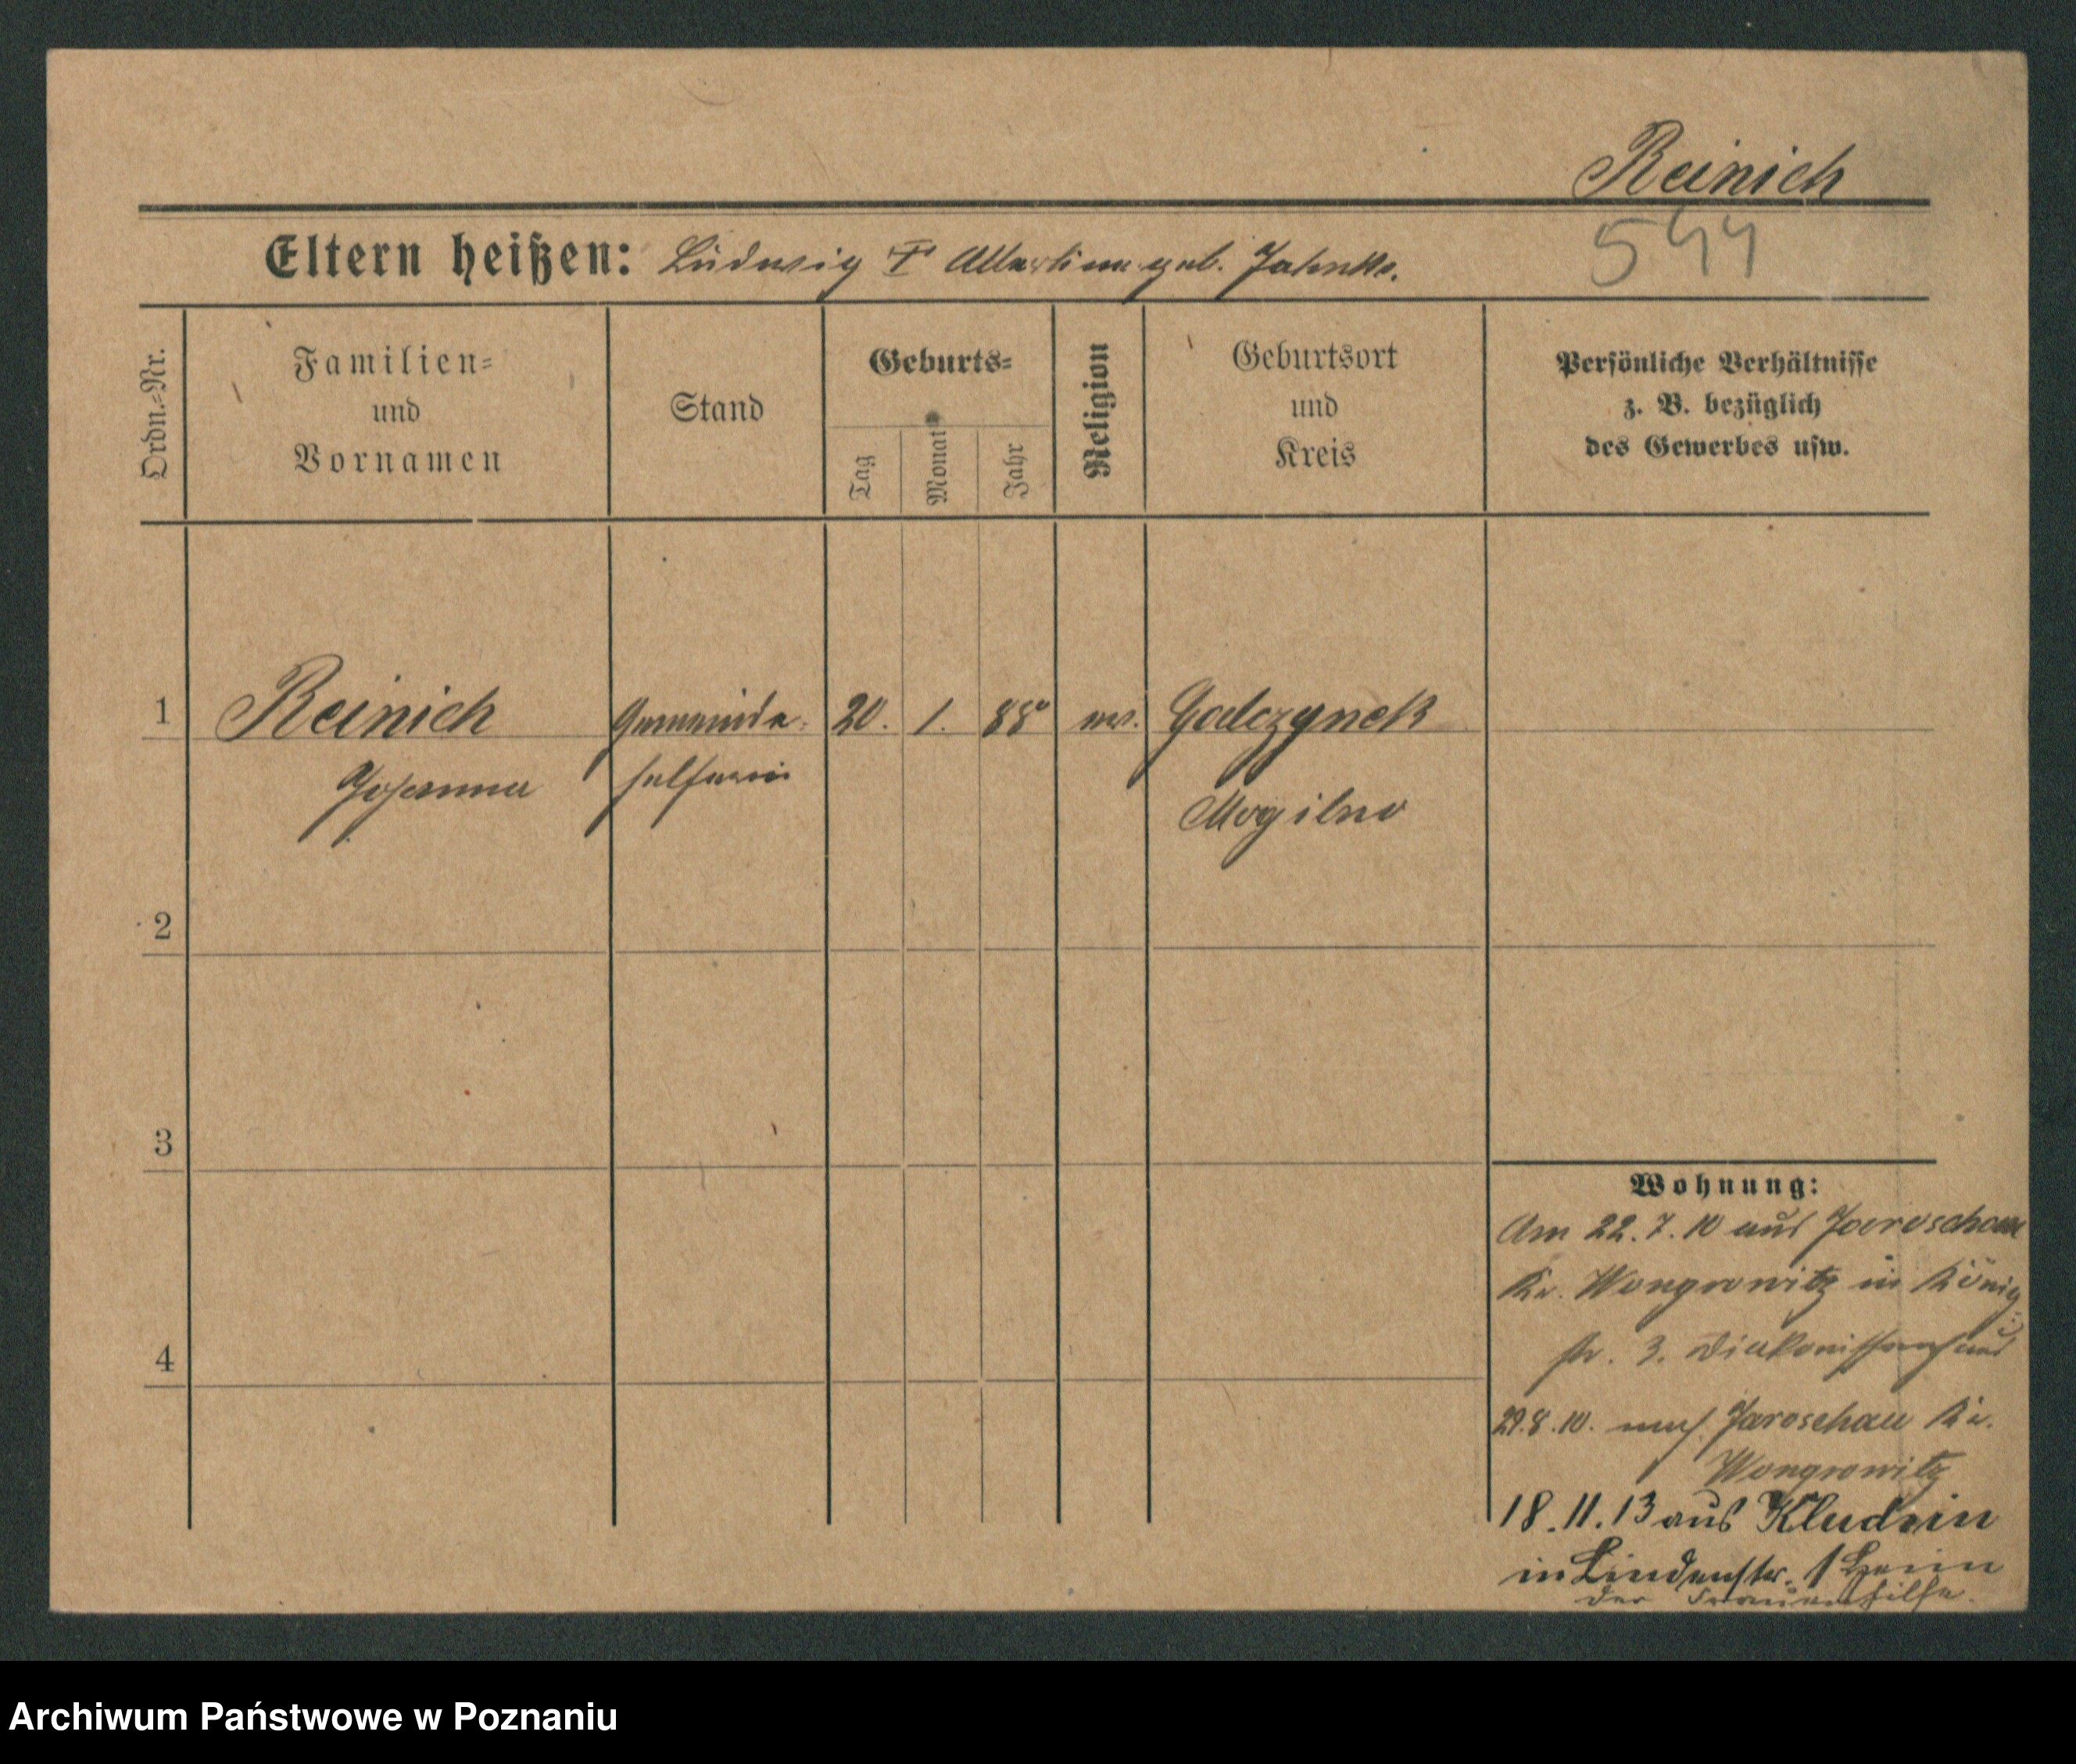 Reinich
544
Eltern heißen: Ludwig & Albertine geb. Jahnke.
Ordn.-Nr.
Familien-
und
Vornamen
Stand
Geburts-
Tag
Monat
Jahr
Religion
Geburtsort
und
Kreis
Persönliche Verhältnisse
z. B. bezüglich
des Gewerbes usw.
1 Reinich Gemeinde- 20. 1. 88 ev. Galczynek
Johanna helferin
Mogilno
2
3
4
Wohnung:
Am 22.7.10 aus Jaroschau
Kr. Wongrowitz in König
str. 3. Diakonissenhaus
29.8.10. nach Jaroschau Kr.
Wongrowitz
18.11.13 aus Kludzin
in Lindenstr. 1 Heim
der Frauenhilfe.
Archiwum Państwowe w Poznaniu